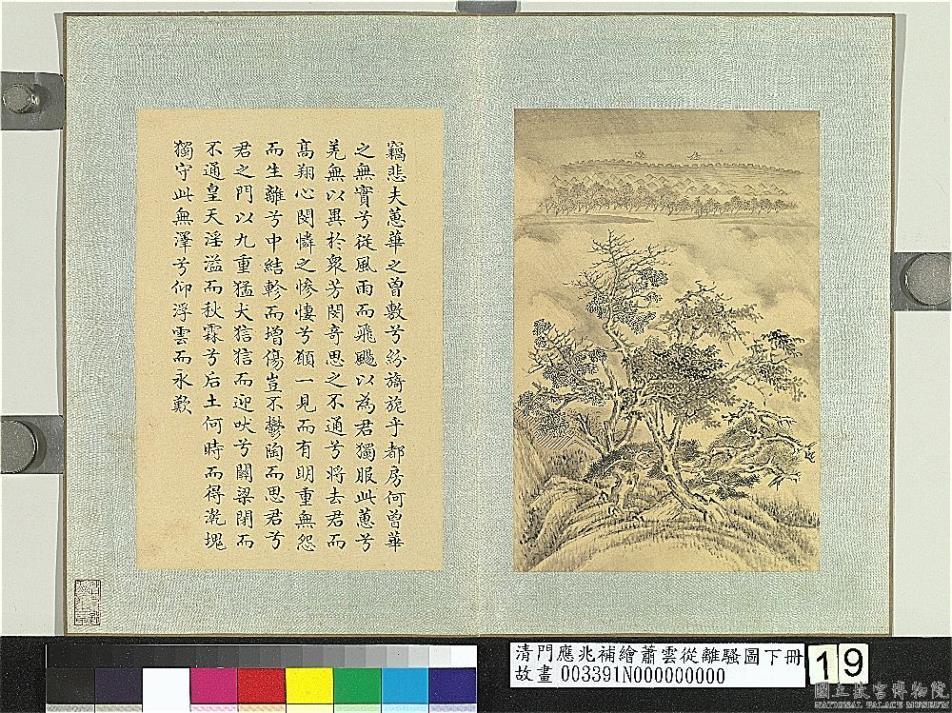 竊悲夫蕙華之曾敷兮紛旖旎乎都房何曾華
之無實兮從風雨而飛颺以為君獨服此蕙兮
羌無以異於衆芳閔奇思之不通兮將去君而
高翔心閔憐之慘悽兮願一見而有明重無怨
而生離兮中結軫而增傷豈不鬱陶而思君兮
君之門以九重猛犬狺狺而迎吠兮關梁閉而
不通皇天淫溢而秋霖兮后土何時而得漧塊
獨守此無澤兮仰浮雲而永歎
清門應兆補繪蕭雲從離騷圖下冊
故畫 003391N000000000
19
國立故宮博物院
NATIONAL PALACE MUSEUM